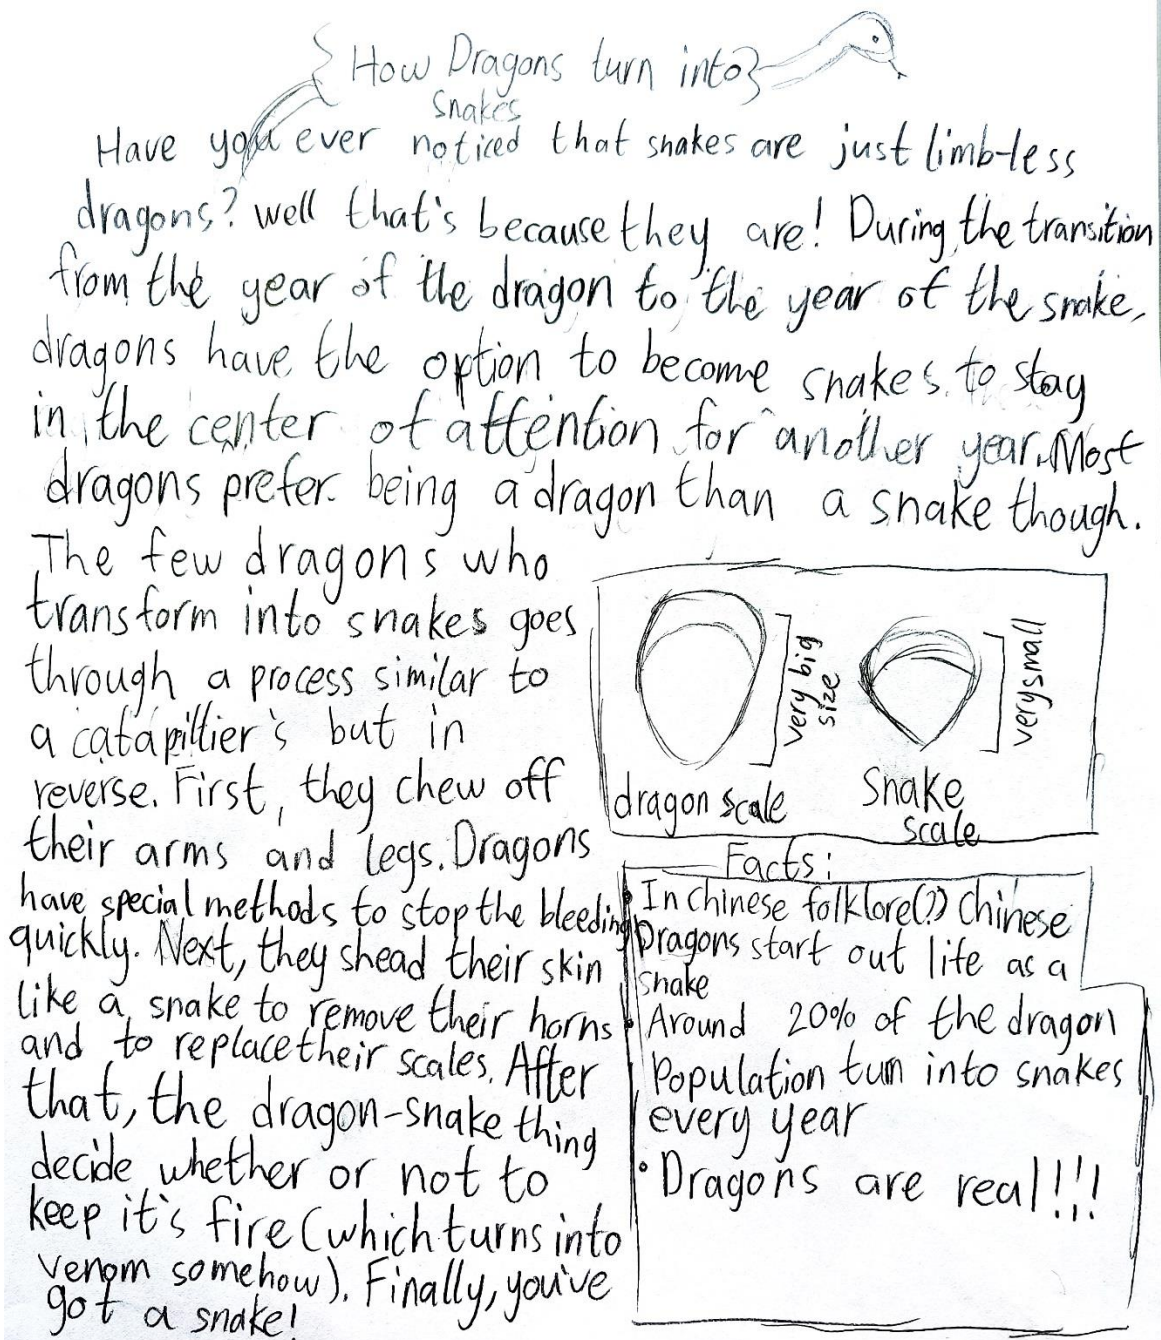 How Dragons turn into
snakes
Have you ever noticed that snakes are just limb-less
dragons? well that's because they are! During the transition
from the year of the dragon to the year of the snake,
dragons have the option to become snakes to stay
in the center of attention for another year. Most
dragons prefer being a dragon than a snake though.
The few dragons who
transform into snakes goes
through a process similar to
a catapillier's but in
reverse. First, they chew off
their arms and legs. Dragons
have special methods to stop the bleeding
quickly. Next, they shead their skin
like a snake to remove their horns
and to replace their scales. After
that, the dragon-snake thing
decide whether or not to
keep it's fire (which turns into
venom somehow). Finally, you've
got a snake!
very big
size
very small
dragon scale
Snake
scale
Facts:
• In chinese folklore(?) Chinese
Dragons start out life as a
snake
• Around 20% of the dragon
Population turn into snakes
every year
• Dragons are real!!!